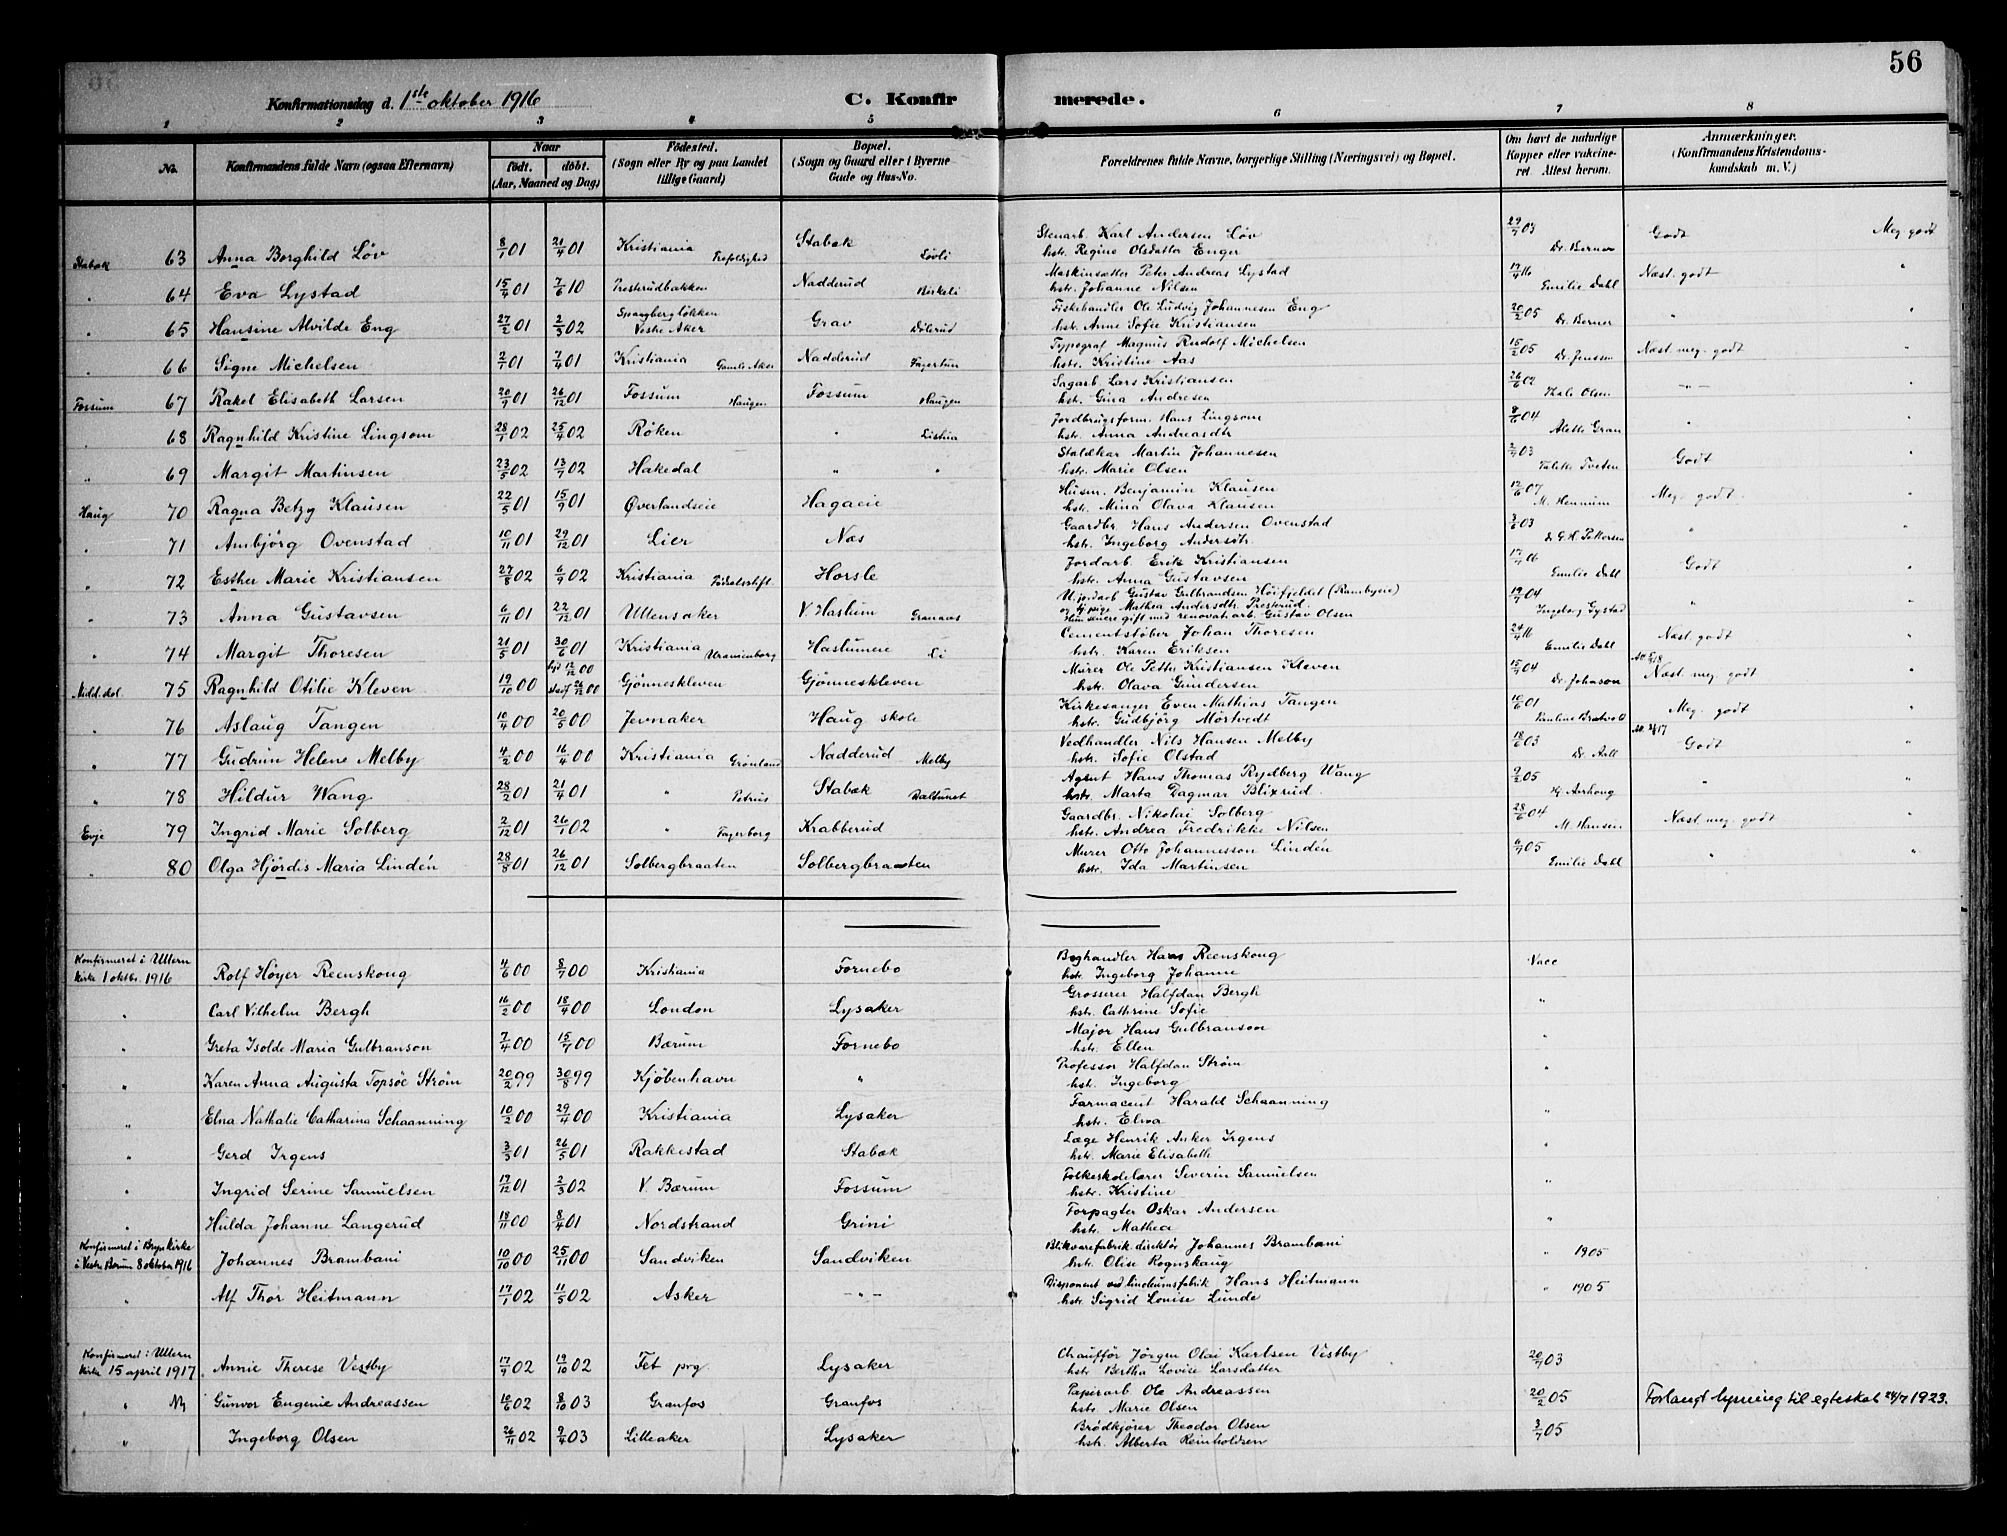 56
Konfirmationsdag d. 1ste oktober 1916 C. Konfirmerede.
1 2 3 4 5 6 7 8
No. Konfirmandens fulde Navn (ogsaa Efternavn) Naar født. døbt. (Aar, Maaned og Dag) Fødested. (Sogn eller By og paa Landet tillige Gaard) Bopæl. (Sogn og Gaard eller i Byerne Gade og Hus-No. Forældrenes fulde Navne, borgerlige Stilling (Næringsvei) og Bopæl. Om havt de naturlige Kopper eller vakcineret Attest herom. Anmærkninger. (Konfirmandens Kristendomskundskab m. V.)
Stabæk 63 Anna Borghild Löv 8/1 01 21/4 01 Kristiania Trefoldighed Stabæk Lövli Stenarb. Karl Andersen Löv 29/7 03 Dr. Berner Godt Meg. godt
hstr. Regine Olsdatter Enger
" 64 Eva Lystad 15/4 01 7/6 10 Presterudbakken Nadderud Birkeli Maskinsætter Peter Andreas Lystad 17/4 16 Emilie Dahl Næst. godt "
hstr. Johanne Nilsen
" 65 Hansine Alvilde Eng 27/2 01 2/3 02 Spangbergløkken Vestre Aker Grav Fiskehandler Ole Ludvig Johannesen Eng 20/2 05 Dr. Berner " "
hstr. Anne Sofie Kristiansen
" 66 Signe Michelsen 2/1 01 7/4 01 Kristiania Gamle Aker Nadderud Fagertun Typograf Magnus Rudolf Michelsen 15/2 05 Dr. Jenssen Næst. meg. godt "
hstr. Kristine Aas
Fossum 67 Rakel Elisabeth Larsen 20/7 01 26/12 01 Fossum Haugen Fossum Haugen Sagarb. Lars Kristiansen 26/6 02 Thale Olsen - " - "
hstr. Gina Andresen
" 68 Ragnhild Kristine Lingsom 28/1 02 25/4 02 Röken " Listua Jordbrugsform. Hans Lingsom 8/6 04 Alette Gran " "
hstr. Anna Andreasdtr
" 69 Margit Martinsen 23/5 02 13/7 02 Hakedal " " Staldkar Martin Johannesen 2/7 03 Godt "
hstr. Marie Olsen
Haug 70 Ragna Betzy Klausen 22/5 01 15/9 01 Øverlandseie Hagaeie Husm. Benjamin Klausen 12/6 07 M. Hennum Meg. godt "
hstr. Mina Olava Klausen
" 71 Ambjörg Ovenstad 10/11 01 29/12 01 Lier Næs Gaardbr. Hans Andersen Ovenstad 3/6 03 Dr G.H. Pettersen " "
hstr. Ingeborg Andersdtr.
" 72 Esther Marie Kristiansen 27/8 02 6/9 02 Kristiania Födselsstift. Horsle Jordarb. Erik Kristiansen 17/4 16 Emilie Dahl Godt "
hstr. Anna Gustavsen
" 73 Anna Gustavsen 6/11 01 22/12 01 Ullensaker V. Haslum Grannas U.g. jordarb Gustav Gulbrandsen Höifjeldet (Rambyeie) 19/9 04 Ingeborg Gystad " "
og pige Mathea Andersdtr. Presterud.
Hun senere gift med renovat. arb. Gustav Olsen
" 74 Margit Thoresen 21/5 01 30/6 01 Kristiania Uranienborg Haslumeie Li Cementstöber Johan Thoresen 24/4 16 Emilie Dahl Næst. godt "
hstr. Karen Eriksen
Nidd.dal 75 Ragnhild Otilie Kleven 19/10 00 hjd 12/12 00 stadf 26/12 00 Gjönneskleven Gjönneskleven Murer Ole Petter Kristiansen Kleven 15/5 04 Dr. Johnson Næst. meg. godt "
hstr. Olava Gundersen
" 76 Aslaug Tangen 10/4 00 20/5 00 Jevnaker Haug skole Kirkesanger Even Mathias Tangen 10/6 01 Pauline Brætvold Meg. godt
hstr. Gudbjörg Mörtvedt
" 77 Gudrun Helene Melby 4/2 00 16/4 00 Kristiania Grönland Nadderud Melby Vedhandler Nils Hansen Melby 18/6 03 Dr. Aall Godt "
hstr. Sofie Olstad
" 78 Hildur Wang 28/2 01 21/4 01 " Petrus Stabæk Agent Hans Thomas Rydberg Wang 9/2 05 " "
hstr. Marta Dagmar Blixrud
Evje 79 Ingrid Marie Solberg 2/12 01 26/1 02 " Fagerborg Krabberud Gaardbr. Nikolai Solberg 28/6 04 M. Hansen Næst. meg. godt "
hstr. Andrea Fredrikke Nilsen
" 80 Olga Hjördis Maria Lindén 28/8 01 26/12 01 Solbergbraaten Solbergbraaten Murer Otto Johannesson Lindén 6/7 05 Emilie Dahl " "
hstr. Ida Martinsen
Konfirmeret i Ullern Kirke 1 oktbr. 1916 Rolf Höyer Reenskoug 4/6 00 8/7 00 Kristiania Fornebo Boghandler Hans Reenskoug Vacc
hstr. Ingeborg Johanne
" Carl Vilhelm Bergh 16/2 00 18/4 00 London Lysaker Grosserer Halfdan Bergh "
hstr. Cathrine Sofie
" Greta Isolde Maria Gulbranson 7/4 00 15/7 00 Bærum Fornebo Major Hans Gulbranson "
hstr. Ellen
" Karen Anna Augusta Topsöe Ström 20/2 99 30/8 99 Kjöbenhavn " Professor Halfdan Ström "
hstr. Ingeborg
" Elna Nathalie Catharina Schaanning 10/2 00 29/4 00 Kristiania Lysaker Farmaceut Harald Schaanning "
hstr. Elna
" Gerd Irgens 3/3 01 26/5 01 Rakkestad Stabæk Læge Henrik Anker Irgens "
hstr. Marie Elisabeth
" Ingrid Serine Samuelsen 19/12 01 2/3 02 V. Bærum Fossum Folkeskolelærer Severin Samuelsen "
hstr. Kristine
" Hulda Johanne Langerud 18/11 00 8/4 01 Nordstrand Grini Forpagter Oskar Andersen "
hstr. Mathea
Konfirmeret i Bryn kirke i Vestre Bærum 8 oktober 1916 Johannes Brambani 10/10 00 25/11 00 Sandviken Sandviken Blikvarefabrik. direktör Johannes Brambani " 1905
hstr. Olise Rognskaug
" Alf Thor Heitmann 17/1 02 11/5 02 Asker - " - Disponent ved linoleumsfabrik Hans Heitmann " 1905
hstr Sigrid Louise Lunde
Konfirmeret i Ullern Kirke 15 april 1917 Annie Therese Vestby 17/9 02 19/10 02 Fet prg. Lysaker Chauffør Jörgen Olai Karlsen Vestby 20/7 03
hstr Bertha Lovise Larsdatter
" Gunvor Eugenie Andreassen 10/6 02 8/10 03 Granfos Granfos Papirarb. Ole Andreassen 20/2 05 Forlangt lysning til egteskab 24/7 1923.
hstr. Marie Olsen
" Ingeborg Olsen 26/11 02 9/4 03 Lilleaker Lysaker Brödkjörer Theodor Olsen 3/7 05
hstr. Alberta Reinholdsen